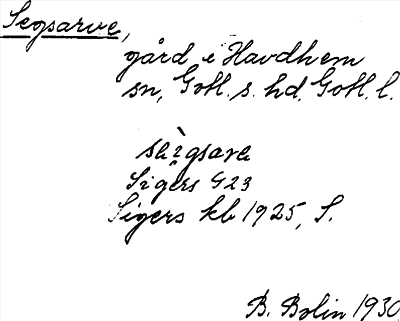 Segsarve,
gård i Havdhem
sn, Gotl. s. hd. Gotl. l.
Sigers G23
Sigers kb 1925, S.
B. Bolin 1930.